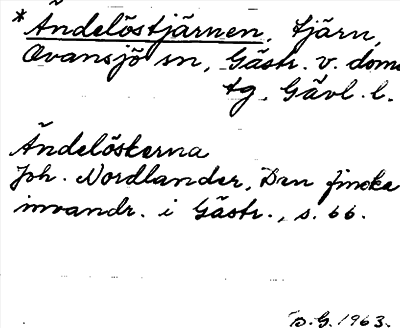 *Ändelöstjärnen, tjärn,
Ovansjö sn, Gästr. v. doms
tg, Gävl. l.
Ändelöskerna
Joh. Nordlander, Den finska
invandr. i Gästr., s. 66.
B.G. 1963.